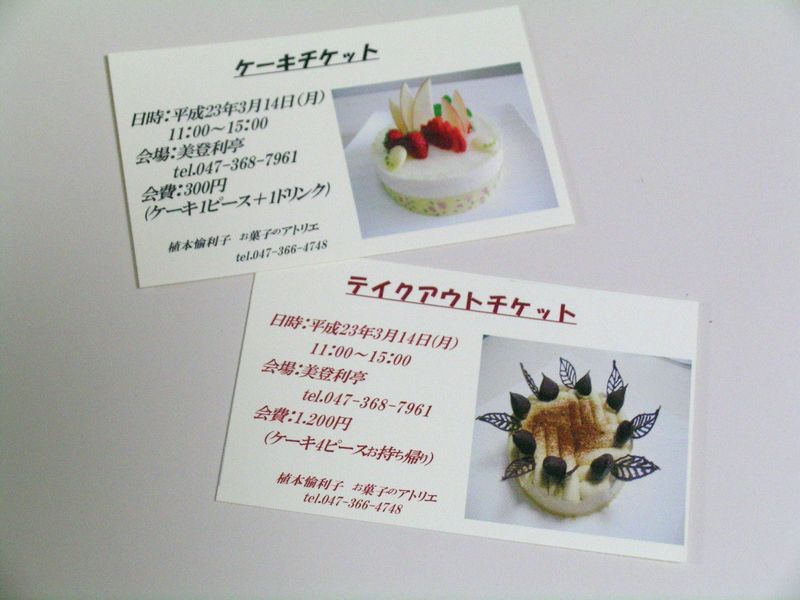 ケーキチケット
日時：平成23年3月14日（月）
11：00～15：00
会場：美登利亭
tel.047-368-7961
会費：300円
(ケーキ1ピース＋1ドリンク）
植本愉利子 お菓子のアトリエ
tel.047-366-4748
テイクアウトチケット
日時：平成23年3月14日（月）
11：00～15：00
会場：美登利亭
tel.047-368-7961
会費：1.200円
（ケーキ4ピースお持ち帰り）
植本愉利子 お菓子のアトリエ
tel.047-366-4748